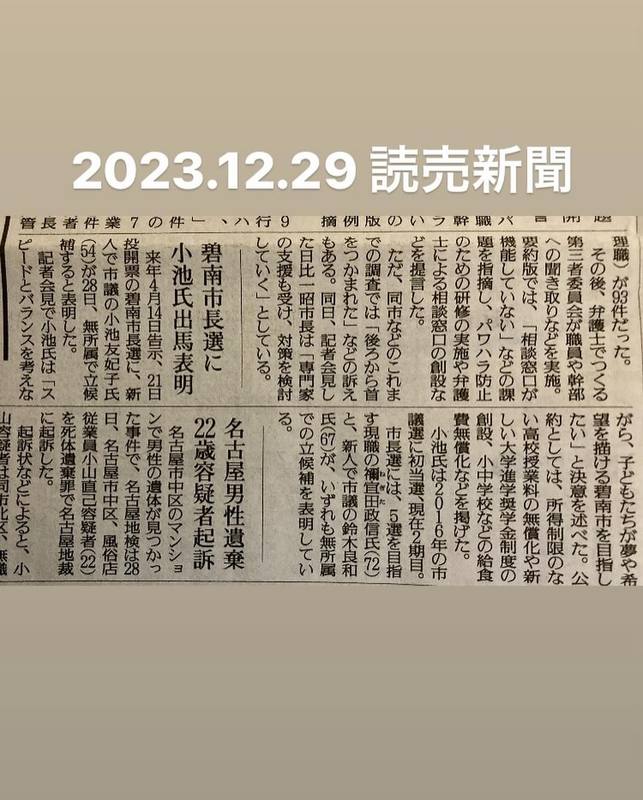 2023.12.29 読売新聞
理職）が93件だった。
その後、弁護士でつくる
第三者委員会が職員や幹部
への聞き取りなどを実施。
要約版では、「相談窓口が
機能していない」などの課
題を指摘し、パワハラ防止
のための研修の実施や弁護
士による相談窓口の創設な
どを提言した。
ただ、同市などのこれま
での調査では「後ろから首
をつかまれた」などの訴え
もある。同日、記者会見し
た日比一昭市長は「専門家
の支援も受け、対策を検討
していく」としている。
碧南市長選に
小池氏出馬表明
来年4月14日告示、21日
投開票の碧南市長選に、新
人で市議の小池友妃子氏
(54)が28日、無所属で立候
補すると表明した。
記者会見で小池氏は「ス
ピードとバランスを考えな
がら、子どもたちが夢や希
望を描ける碧南市を目指し
たい」と決意を述べた。公
約としては、所得制限のな
い高校授業料の無償化や新
しい大学進学奨学金制度の
創設、小中学校などの給食
費無償化などを掲げた。
小池氏は2016年の市
議選に初当選、現在2期目。
市長選には、5選を目指
す現職の禰宜田政信氏(72)
と、新人で市議の鈴木良和
氏(67)が、いずれも無所属
での立候補を表明してい
る。
名古屋男性遺棄
22歳容疑者起訴
名古屋市中区のマンショ
ンで男性の遺体が見つかっ
た事件で、名古屋地検は28
日、名古屋市中区、風俗店
従業員小山直己容疑者(22)
を死体遺棄罪で名古屋地裁
に起訴した。
起訴状などによると、小
山容疑者は同市北区、無職